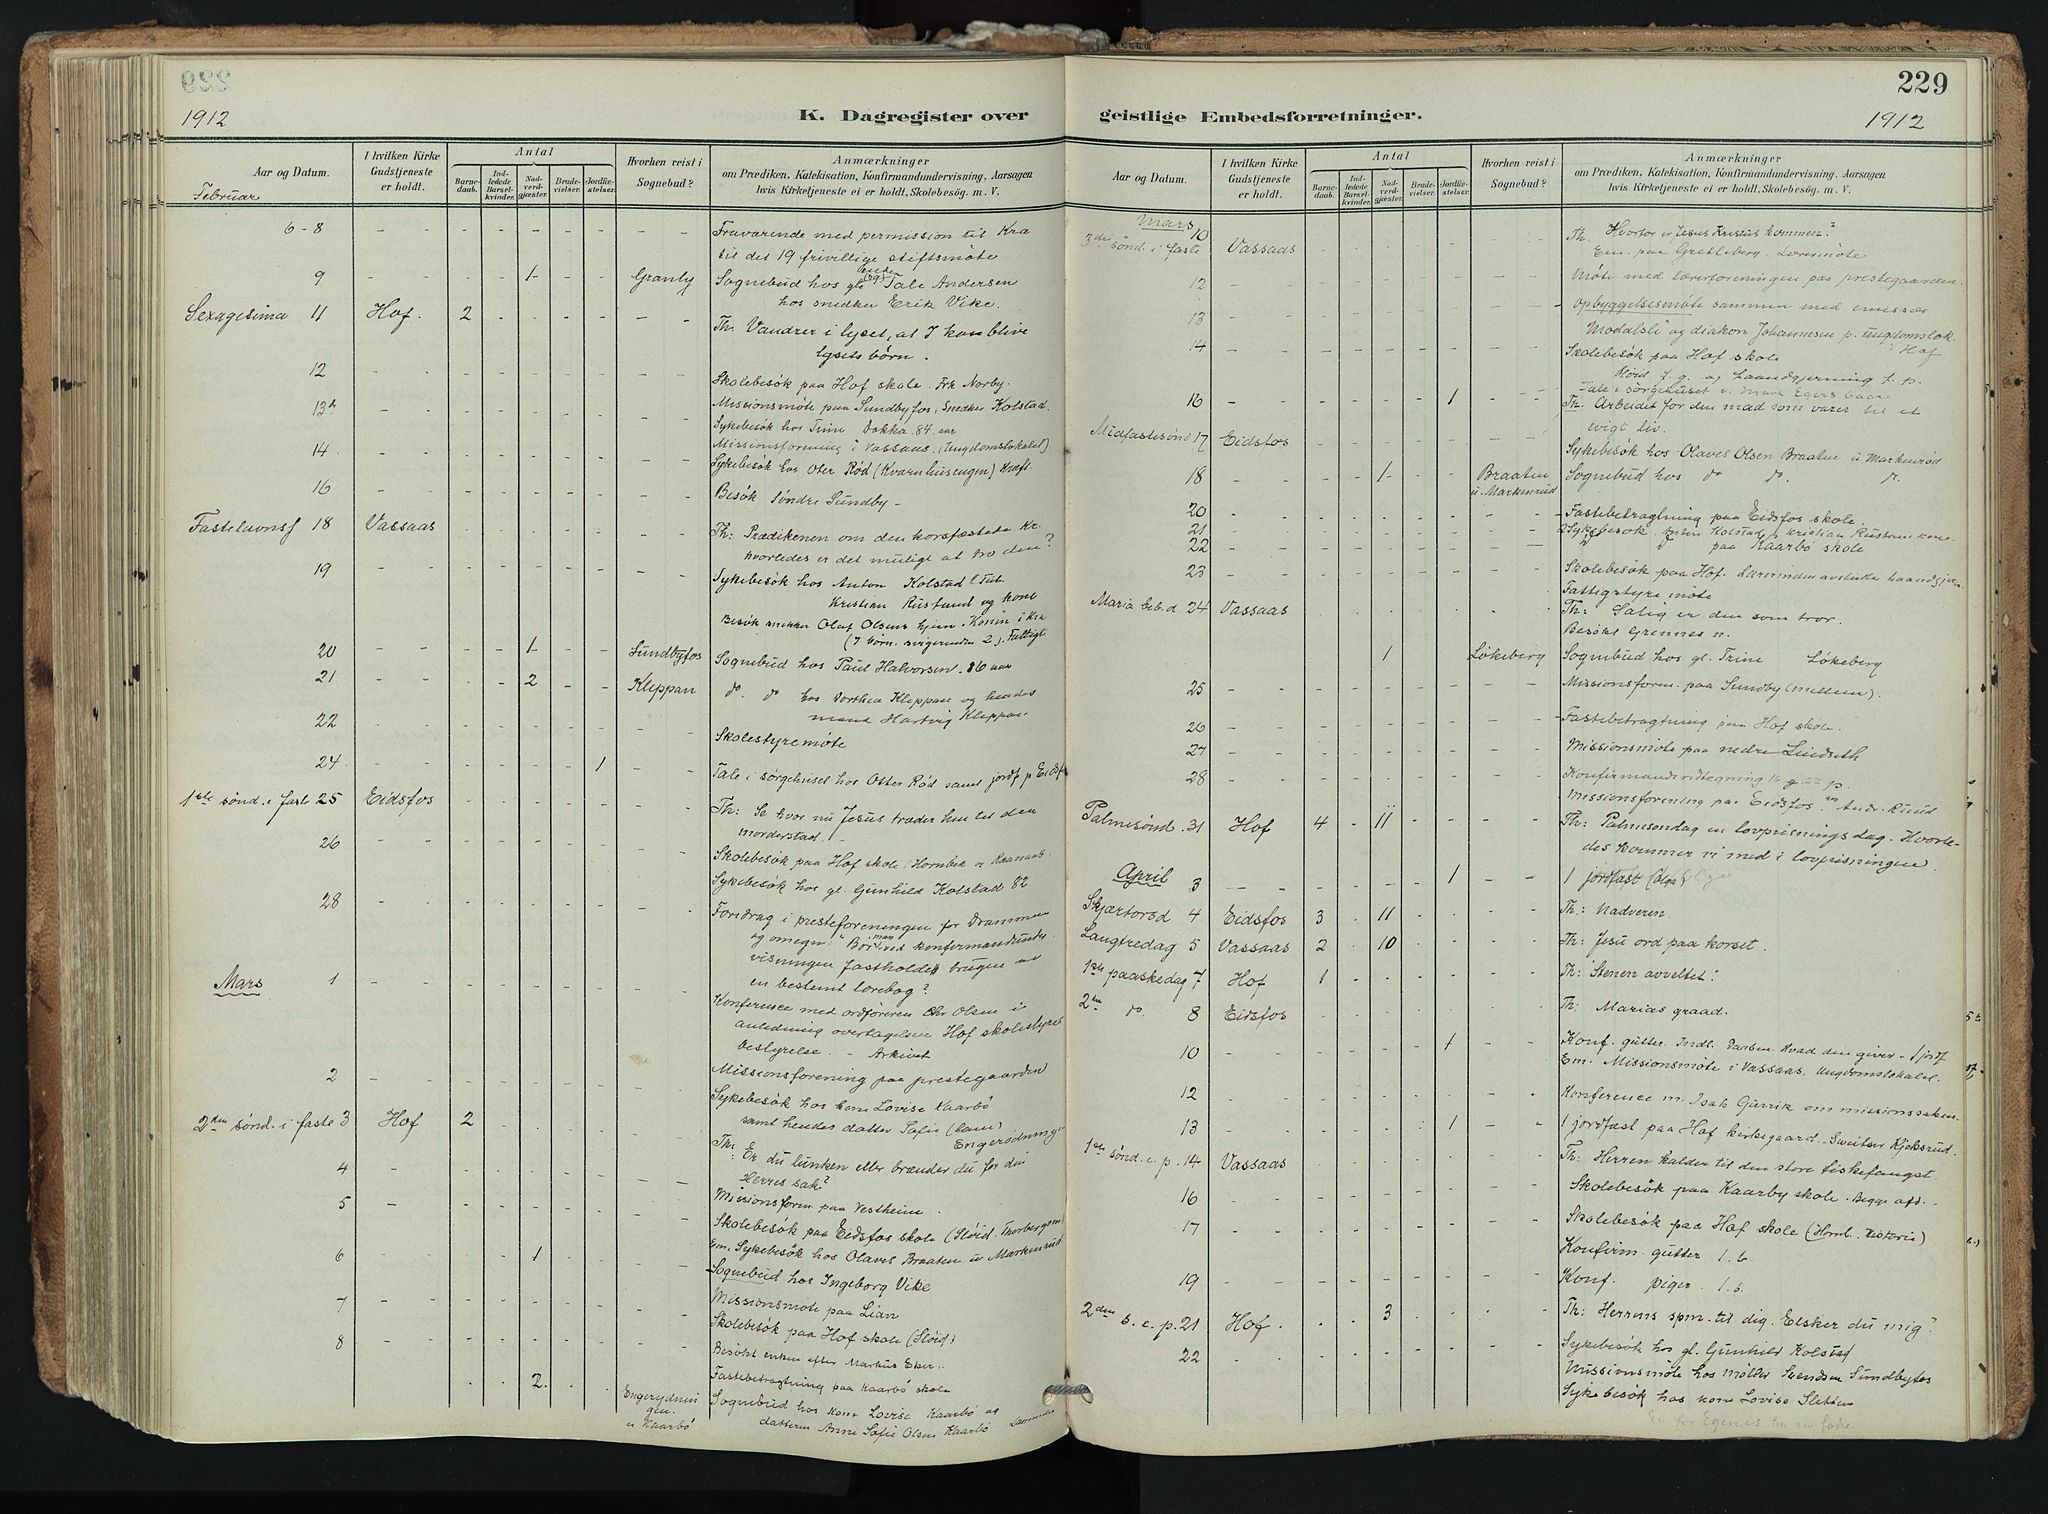 229
1912
K. Dagregister over
Aar og Datum.
I hvilken Kirke Gudstjeneste er holdt.
Antal
Barnedaab.
Indledede Barselkvinder.
Nadverdgjæster.
Brudevielser.
Jordfæstelser.
Hvorhen reist i Sognebud?
Anmærkninger
om Prædiken, Katekisation, Konfirmandundervisning, Aarsagen
hvis Kirketjeneste ei er holdt, Skolebesøg. m. V.
Februar
6-8 Fraværende med permission til Kra
til det 19 frivillige stiftsmøte
9 1 Granby Sognebud hos gl. Tale Andersen
hos snedker Erik Vike.
Sexagesima 11 Hof. 2 Th. Vandrer i lyset, at I kan blive
lysets børn.
12 Skolebesøk paa Hof skole. Frk Norby.
13 Missionsmøte paa Sundbyfos. Snedker Kolstad.
Sykebesøk hos Trine Dokka 84 aar
14 Missionsforening i Vassaas. (Ungdomslokalet)
Sykebesøk hos Oter Rød (Kvarnhusengen) Kræft
16 Besøk Søndre Sundby
Fastelavnss 18 Vassaas Th: Prædikenen om den korsfæstede Kr.
hvorledes er det muligt at tro den?
19 Sykebesøk hos Anton Kolstad (Tub.
Kristian Rustand og kone
Besøk snekker Olaf Olsens hjem. Konen i Kra
(7 børn. svigermoder 2). Fattigt
20 1 Sundbyfos Sognebud hos Paul Halvorsen. 86 aar
21 2 Kleppan do. do hos Dorthea Kleppan og hendes
mand Hartvig Kleppan
22 Skolestyremøte
24 1 Tale i sørgehuset hos Otter Rød samt jordf p Eidsf
1ste sønd. i faste 25 Eidsfos Th: Se hvor nu Jesus træder hen til den
morderstad.
26 Skolebesøk paa Hof skole (Hornbek og Raanaas
Sykebesøk hos gl. Gunhild Kolstad 82
28 Foredrag i presteforeningen for Drammen
og omegn: "Bør man ved konfirmandunder-
visningen fastholde brugen av
en bestemt lærebog?
Mars 1 Konference med ordføreren Chr Olsen i
anledning overtagelsen Hof skolestyres
bestyrelse. - Arkivet
2 Missionsforening paa prestegaarden
Sykebesøk hos kone Lovise Kaarbø
samt hendes datter Sofie (lam) Engerødningen
2den sønd. i faste 3 Hof 2 Th: Er du lunken eller brænder du for din
Herres sak?
4 Missionsforen paa Vestheim.
5 Skolebesøk paa Eidsfos skole (Sløid. Thorbergsen)
Em. Sykebesøk hos Olaves Braaten u Markenrud
6 1 Sognebud hos Ingeborg Vike
Missionsmøte paa Lian
7 Skolebesøk paa Hof skole (Sløid)
8 Besøkt enken efter Markus Eker.
Fastebetragtning paa Kaarbø skole
2 Engerydningen
u Kaarbø Sognebud hos kone Lovise Kaarbø og
datteren Anne Sofie Olsen Kaarbø
229
geistlige Embedsforretninger.
1912
Aar og Datum.
I hvilken Kirke Gudstjeneste er holdt.
Antal
Barnedaab.
Indledede Barselkvinder.
Nadverdgjæster.
Brudevielser.
Jordfæstelser.
Hvorhen reist i Sognebud?
Anmærkninger
om Prædiken, Katekisation, Konfirmandundervisning, Aarsagen
hvis Kirketjeneste ei er holdt, Skolebesøg. m. V.
Mars
3die sønd. i faste 10 Vassaas Th. Hvorfor er Jesus Kristus kommen?
Em. paa Gretleberg. Lærermøte
12 Møte med lærerforeningen paa prestegaarden.
13 Opbyggelsesmøte sammen med emissær
Modalsli og diakon Johannesen p. Ungdomslok.
i Hof
14 Skolebesøk paa Hof skole
Hørd f. g. og haandgjerning f. p.
16 1 Tale i sørgehuset v. Mark Egers baare
Midfastesønd 17 Eidsfos Th: Arbeidet for den mad som varer til et
evigt liv.
Sykebesøk hos Olaves Olsen Braaten u Markenrød
18 1 Braaten
u. Markenrud Sognebud hos do do.
20 Fastebetragtning paa Eidsfos skole.
21 2 Sykebesøk Anton Kolstad, Kristian Rustans kone
22 paa Kaarbø skole
23 Skolebesøk paa Hof. Lærerinden avslutte haandgjern.
Fattigstyremøte
Maria beb. d 24 Vassaas Th: Salig er den som tror.
Besøkt Grennes n.
1 Løkeberg Sognebud hos gl. Trine Løkeberg
25 Missionsforen. paa Sundby (mellem).
26 Fastebetragtning paa Hof skole.
27 Missionsmøte paa nedre Lindseth
28 Konfirmandindtegning 16 g 22 p.
Missionsforening paa Eidsfos. Andr. Ruud
Palmesønd. 31 Hof 4 11 Th: Palmesøndag en lovprisningsdag. Hvorle-
des kommer vi med i lovprisningen
April 3 1 1 jordfæst (Olga)
Skjærtorsd 4 Eidsfos 3 11 Th: Nadveren.
Langfredag 5 Vassaas 2 10 Th: Jesu ord paa korset.
1ste paaskedag 7 Hof 1 Th: Stenen avveltet!
2den do. 8 Eidsfos Th: Marias graad.
10 1 Konf. gutter. Indl. Daaben. Hvad den giver - 1 jordf
Em. Missionsmøte i Vassaas. Ungdomslokalet.
12 Konference m. Isak Gurrik om missionssaken.
13 1 1 jordfæst paa Hof kirkegaard. - Sveitser Kjeksrud.
1ste sønd. e. p. 14 Vassaas Th: Herren kalder til den store fiskefangst.
16 Skolebesøk paa Kaarby skole. Begge afd.
17 Skolebesøk paa Hof skole (Hornb. Historie)
Konfirm. gutter 1. b
19 Konf. piger 1. b.
2den s. e. p. 21 Hof. 3 Th: Herrens spm. til dig. Elsker du mig?
22 Sykebesøk hos gl. Gunhild Kolstad
Missionsmøte hos møller Svendsen Sundbyfos
Sykebesøk hos kone Lovise Sletsen